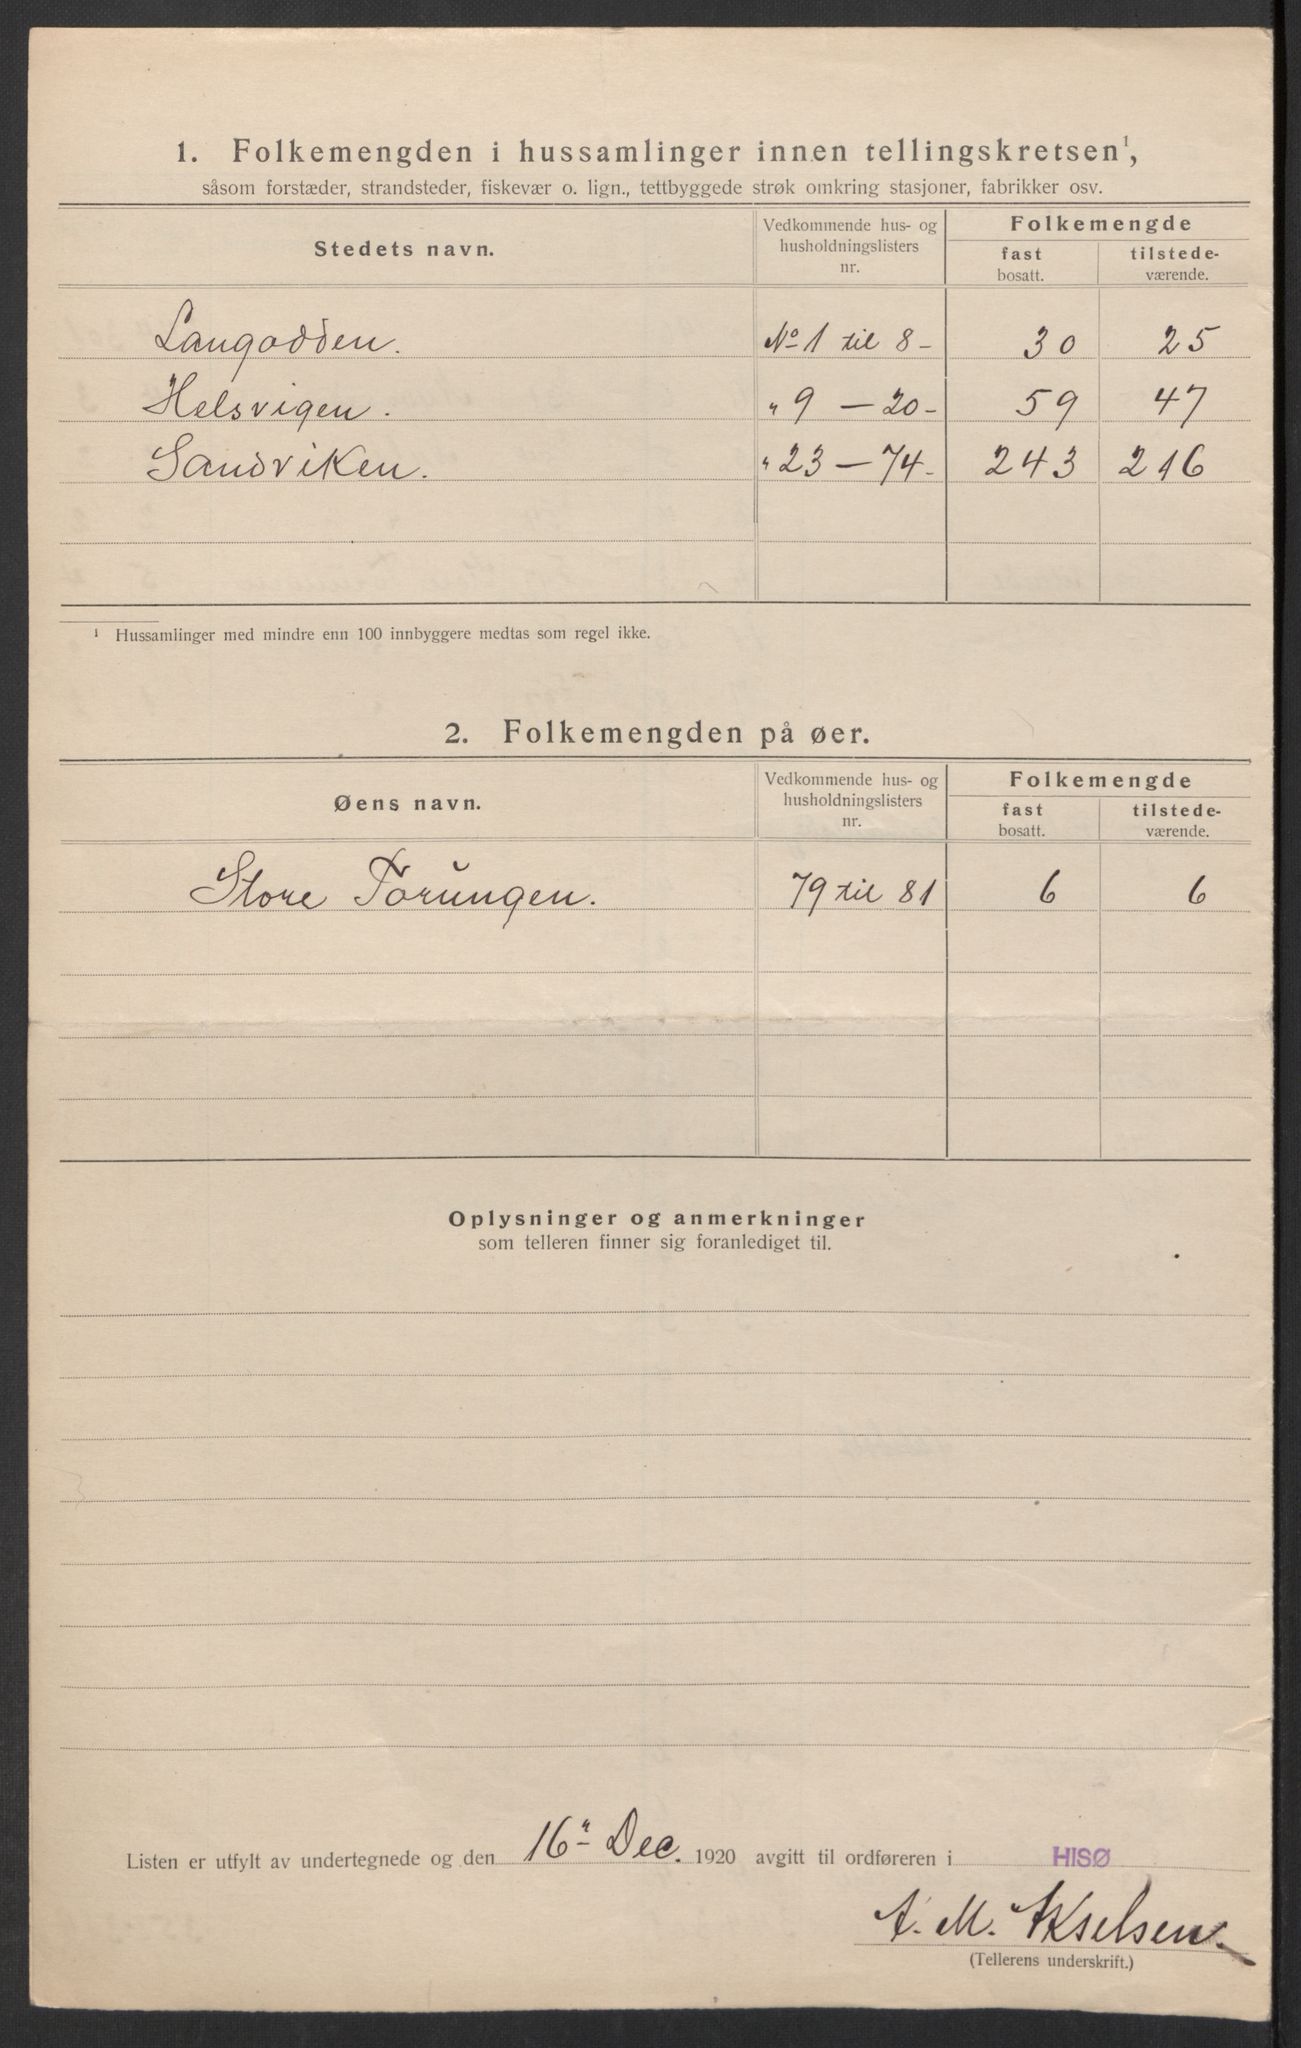 1. Folkemengden i hussamlinger innen tellingskretsen¹,
såsom forstæder, strandsteder, fiskevær o. lign., tettbyggede strøk omkring stasjoner, fabrikker osv.
Stedets navn.
Vedkommende hus- og
husholdningslisters
nr.
Folkemengde
fast
bosatt.
tilstede-
værende.
Langodden. No 1 til 8 - 30 25
Helsvigen. " 9 — 20 - 59 47
Sandviken. " 23 — 74 - 243 216
¹ Hussamlinger med mindre enn 100 innbyggere medtas som regel ikke.
2. Folkemengden på øer.
Øens navn.
Vedkommende hus- og
husholdningslisters
nr.
Folkemengde
fast
bosatt.
tilstede-
værende.
Store Torungen. 79 til 81 6 6
Oplysninger og anmerkninger
som telleren finner sig foranlediget til.
Listen er utfylt av undertegnede og den 16" Dec. 1920 avgitt til ordføreren i HISØ
A. M. Akselsen.
(Tellerens underskrift.)